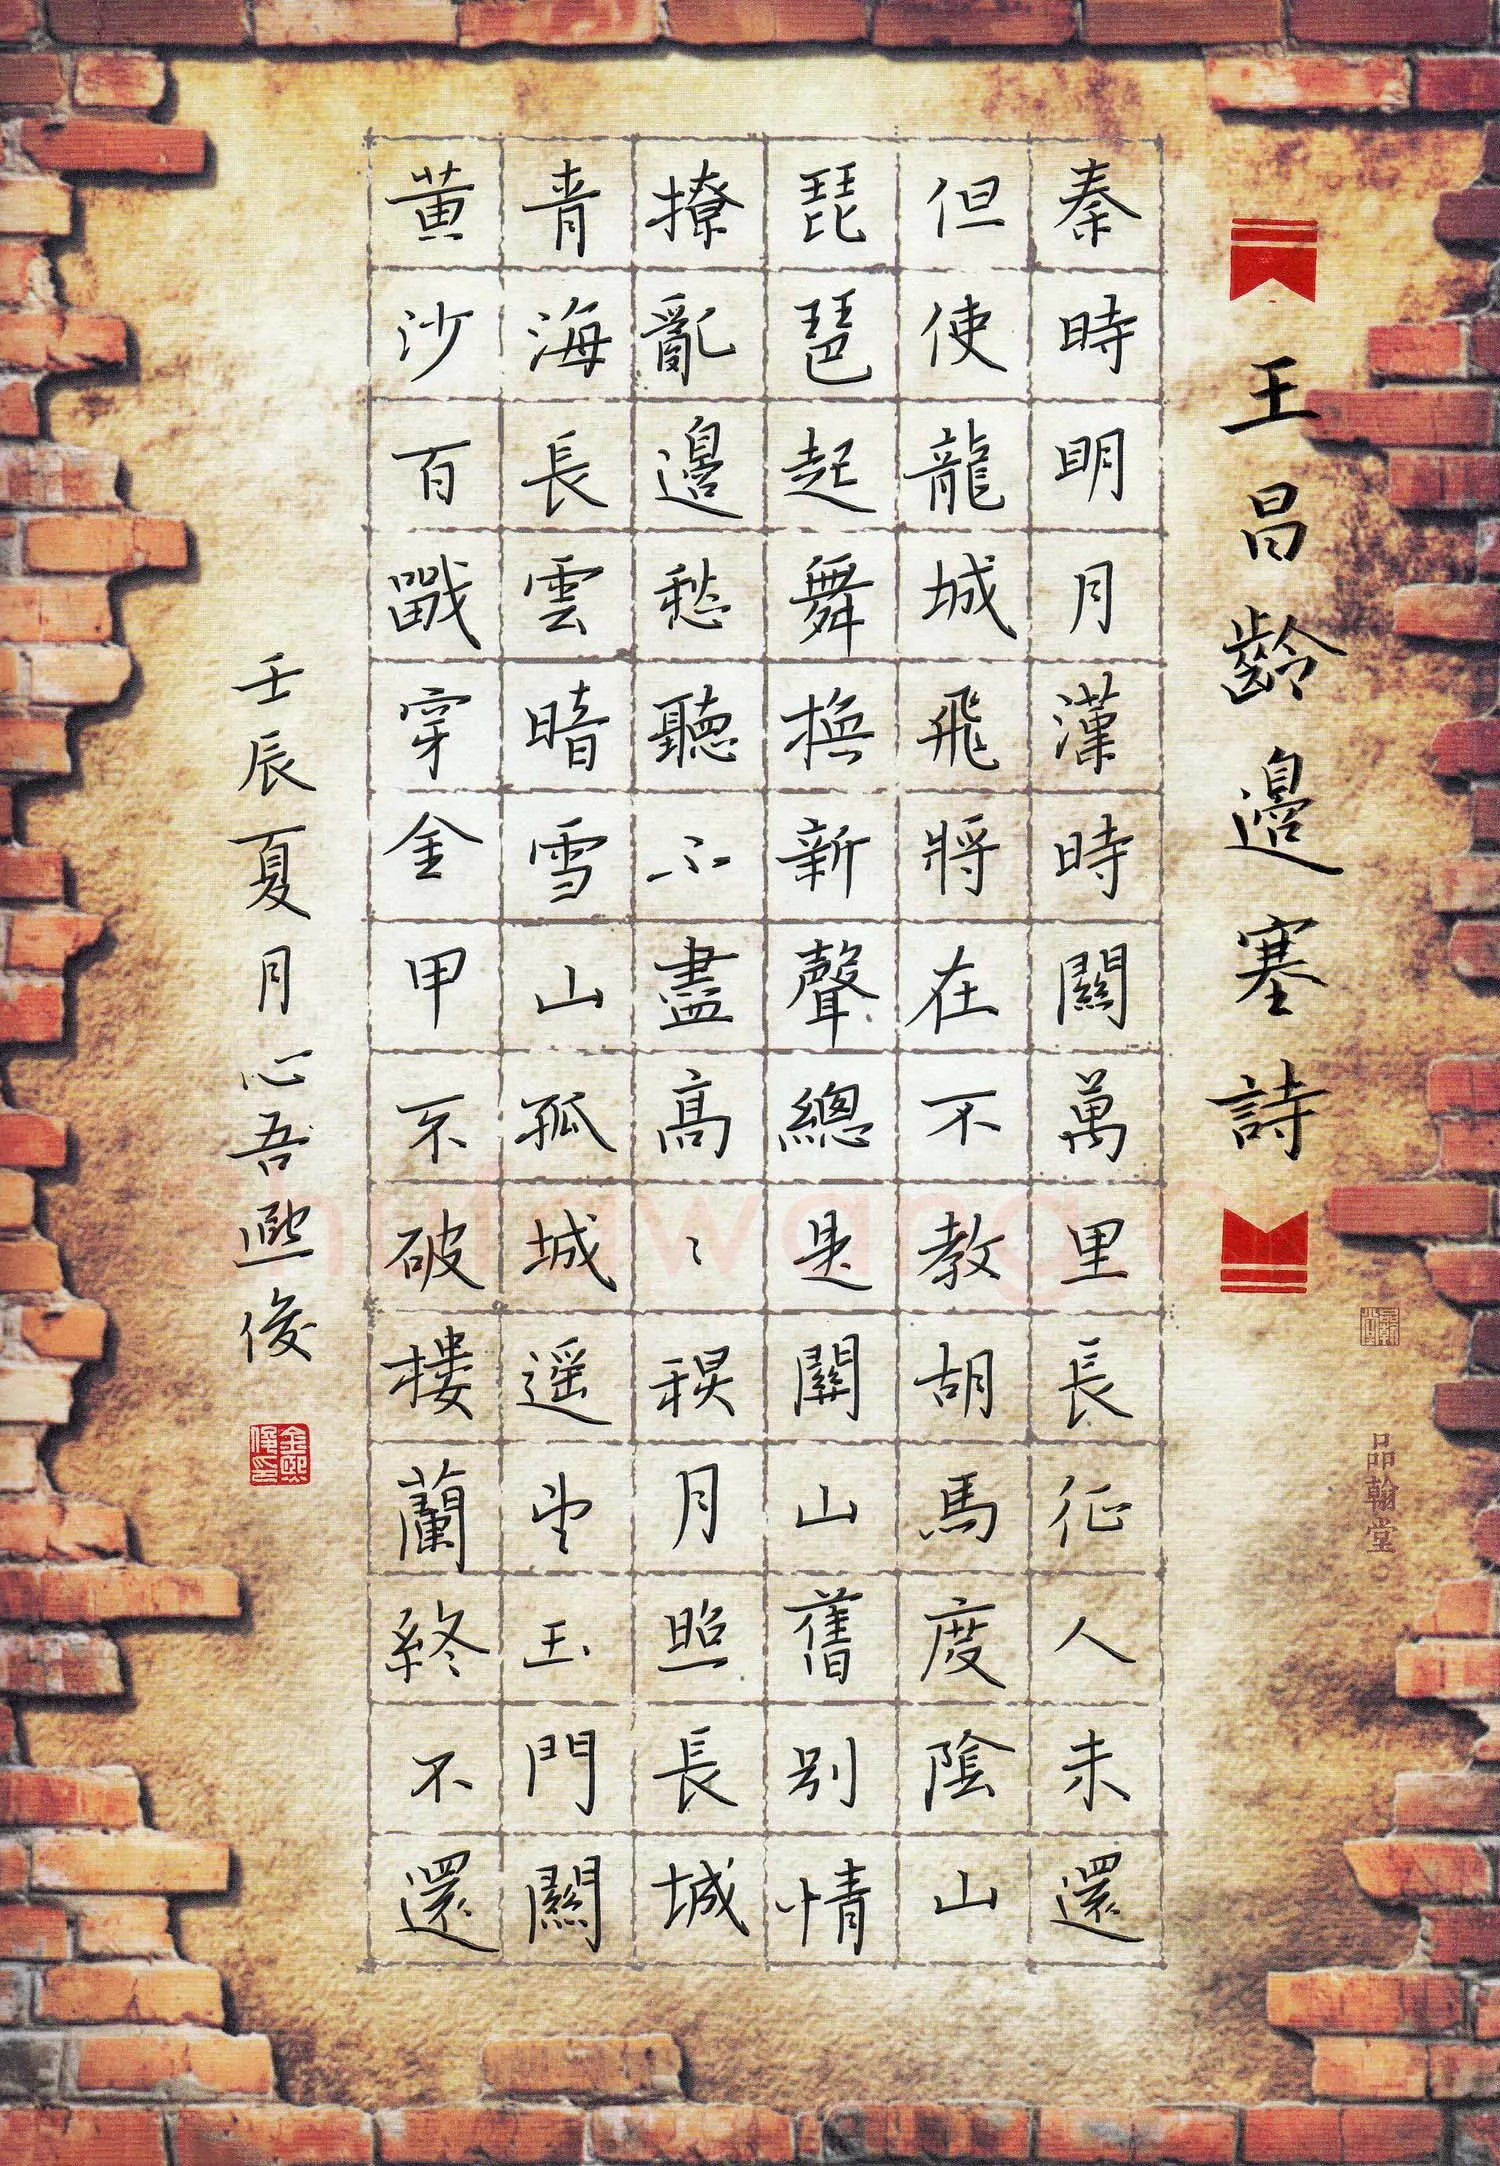 王昌齡邊塞詩
秦時明月漢時關萬里長征人未還
但使龍城飛將在不教胡馬度陰山
琵琶起舞換新聲總是關山舊別情
撩亂邊愁聽不盡高〻秋月照長城
青海長雲暗雪山孤城遥望玉門關
黄沙百戰穿金甲不破樓蘭終不還
壬辰夏月心吾熙俊
金熙俊印
品翰堂